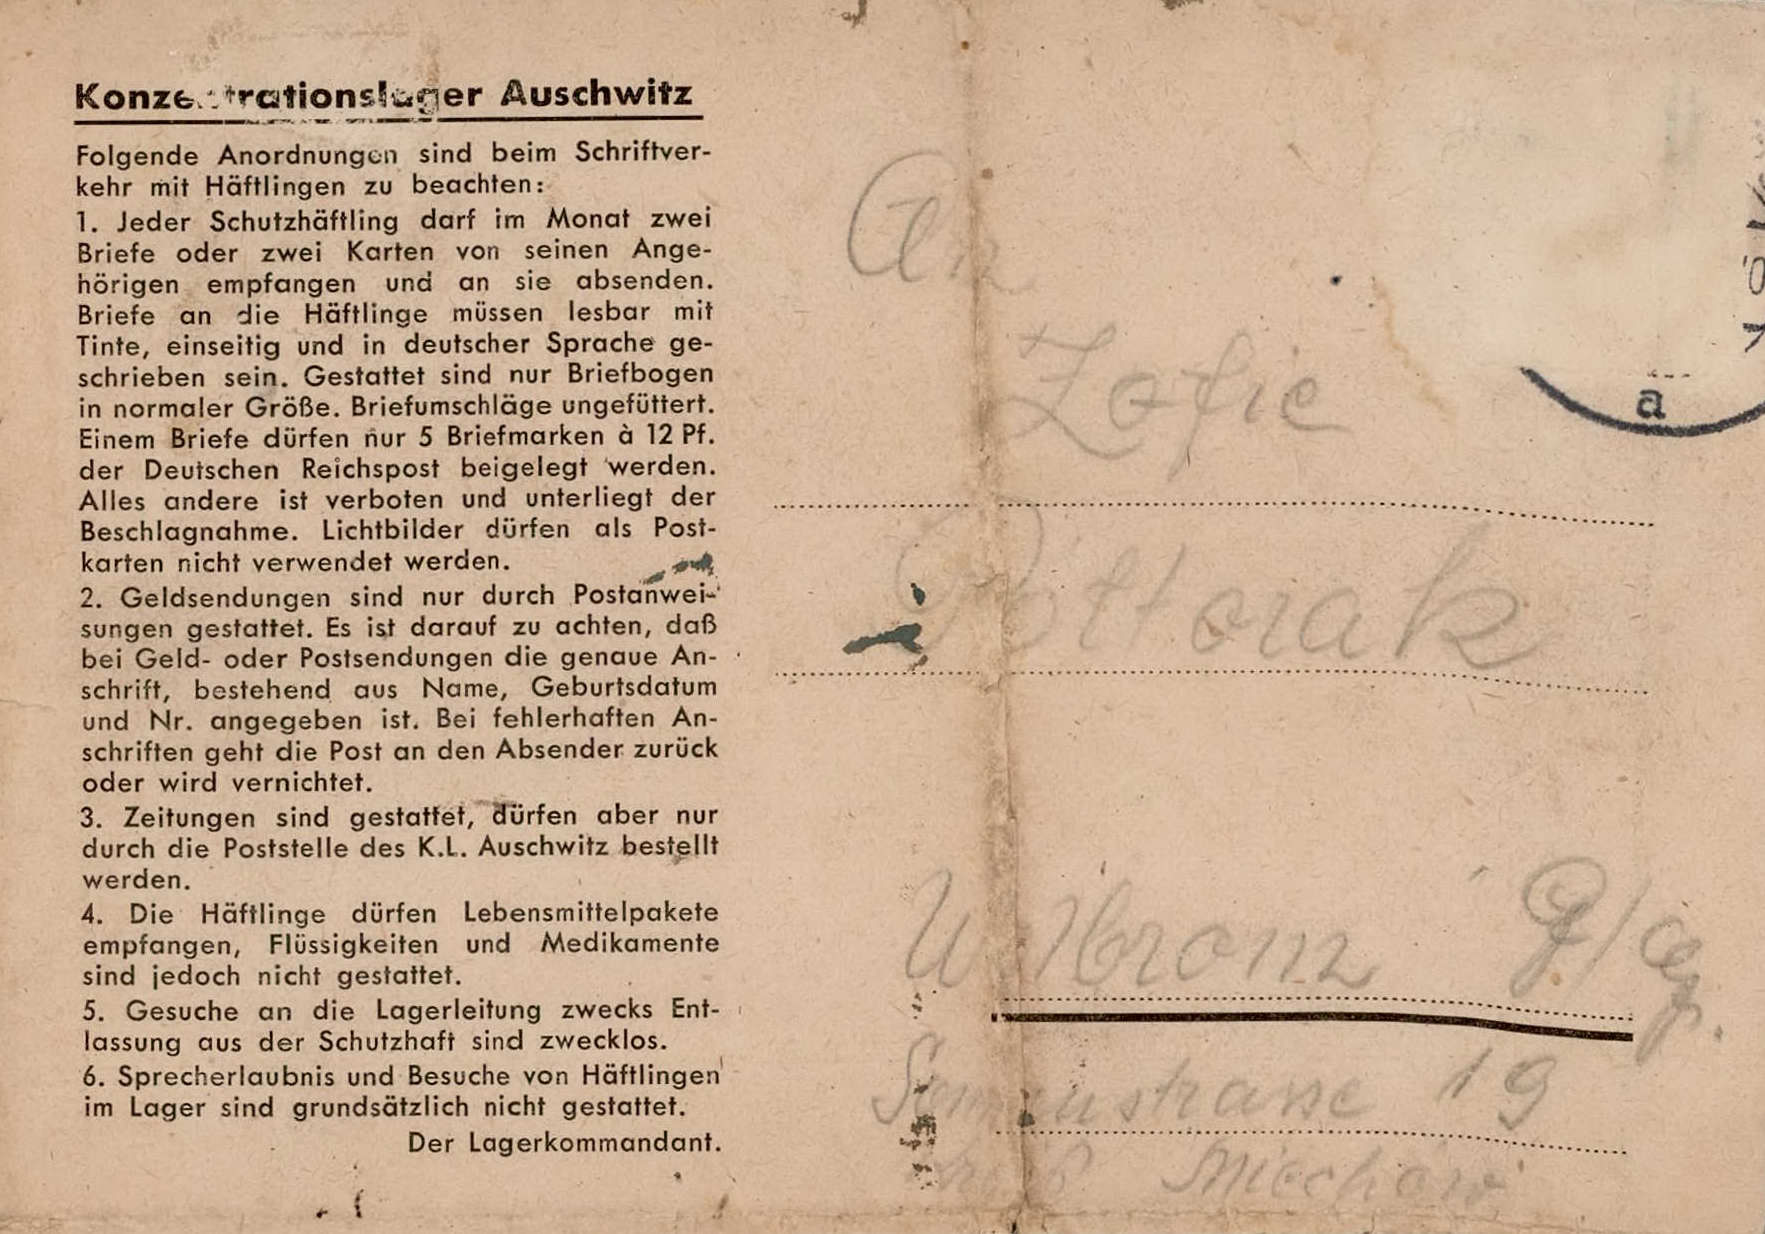 Konzentrationslager Auschwitz
Folgende Anordnungen sind beim Schriftver-
kehr mit Häftlingen zu beachten:
1. Jeder Schutzhäftling darf im Monat zwei
Briefe oder zwei Karten von seinen Ange-
hörigen empfangen und an sie absenden.
Briefe an die Häftlinge müssen lesbar mit
Tinte, einseitig und in deutscher Sprache ge-
schrieben sein. Gestattet sind nur Briefbogen
in normaler Größe. Briefumschläge ungefüttert.
Einem Briefe dürfen nur 5 Briefmarken à 12 Pf.
der Deutschen Reichspost beigelegt werden.
Alles andere ist verboten und unterliegt der
Beschlagnahme. Lichtbilder dürfen als Post-
karten nicht verwendet werden.
2. Geldsendungen sind nur durch Postanwei-
sungen gestattet. Es ist darauf zu achten, daß
bei Geld- oder Postsendungen die genaue An-
schrift, bestehend aus Name, Geburtsdatum
und Nr. angegeben ist. Bei fehlerhaften An-
schriften geht die Post an den Absender zurück
oder wird vernichtet.
3. Zeitungen sind gestattet, dürfen aber nur
durch die Poststelle des K.L. Auschwitz bestellt
werden.
4. Die Häftlinge dürfen Lebensmittelpakete
empfangen, Flüssigkeiten und Medikamente
sind jedoch nicht gestattet.
5. Gesuche an die Lagerleitung zwecks Ent-
lassung aus der Schutzhaft sind zwecklos.
6. Sprecherlaubnis und Besuche von Häftlingen
im Lager sind grundsätzlich nicht gestattet.
Der Lagerkommandant.
An
Zofie
Półtorak
Wolbrom
19
Kreis Miechów
a